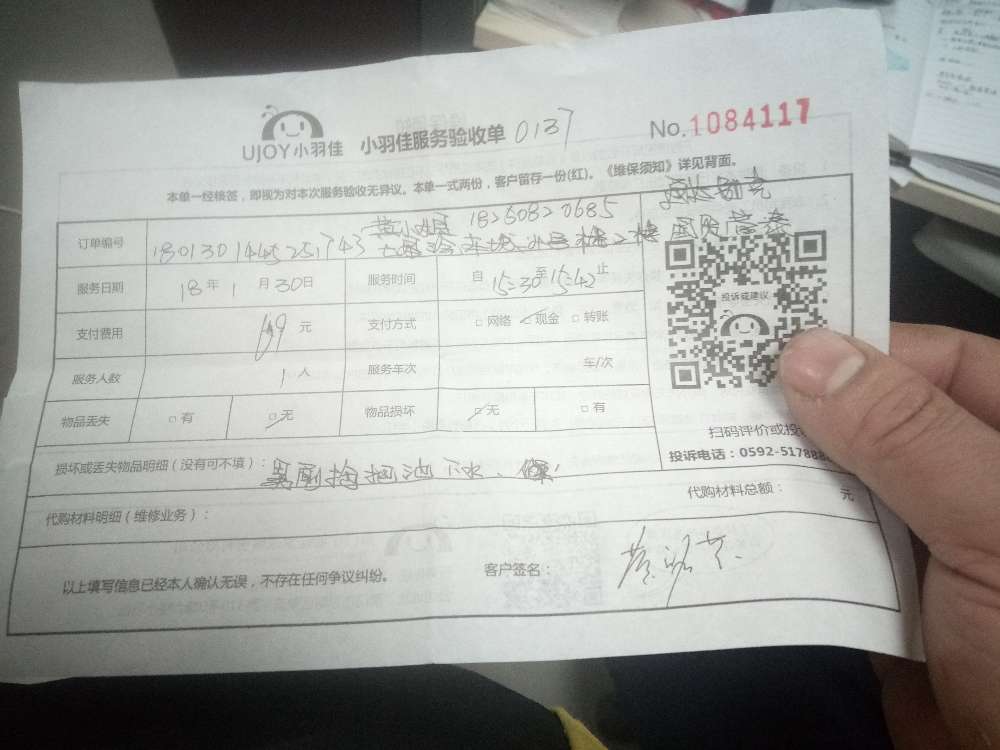 UJOY小羽佳 小羽佳服务验收单 0137 No.1084117
本单一经核签，即视为对本次服务验收无异议。本单一式两份，客户留存一份(红)。《维保须知》详见背面。
黄小姐 18250820685
订单编号 180130144525,743
服务日期 18年1月30日 服务时间 自15:30至15:42止
投诉或建议
支付费用 元 支付方式 □网络 □现金 □转账
服务人数 1人 服务车次 车/次
物品丢失 □有 □无 物品损坏 □无 □有
扫码评价或投
投诉电话：0592-517888
损坏或丢失物品明细（没有可不填）： 池下水、
代购材料明细（维修业务）： 代购材料总额： 元
以上填写信息已经本人确认无误，不存在任何争议纠纷。 客户签名：